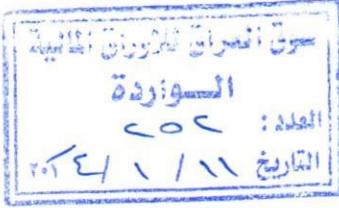 سوق العراق للأوراق المالية
الـــواردة
العدد : ٢٥٢
التاريخ ١١ / ١ / ٢٠١٤